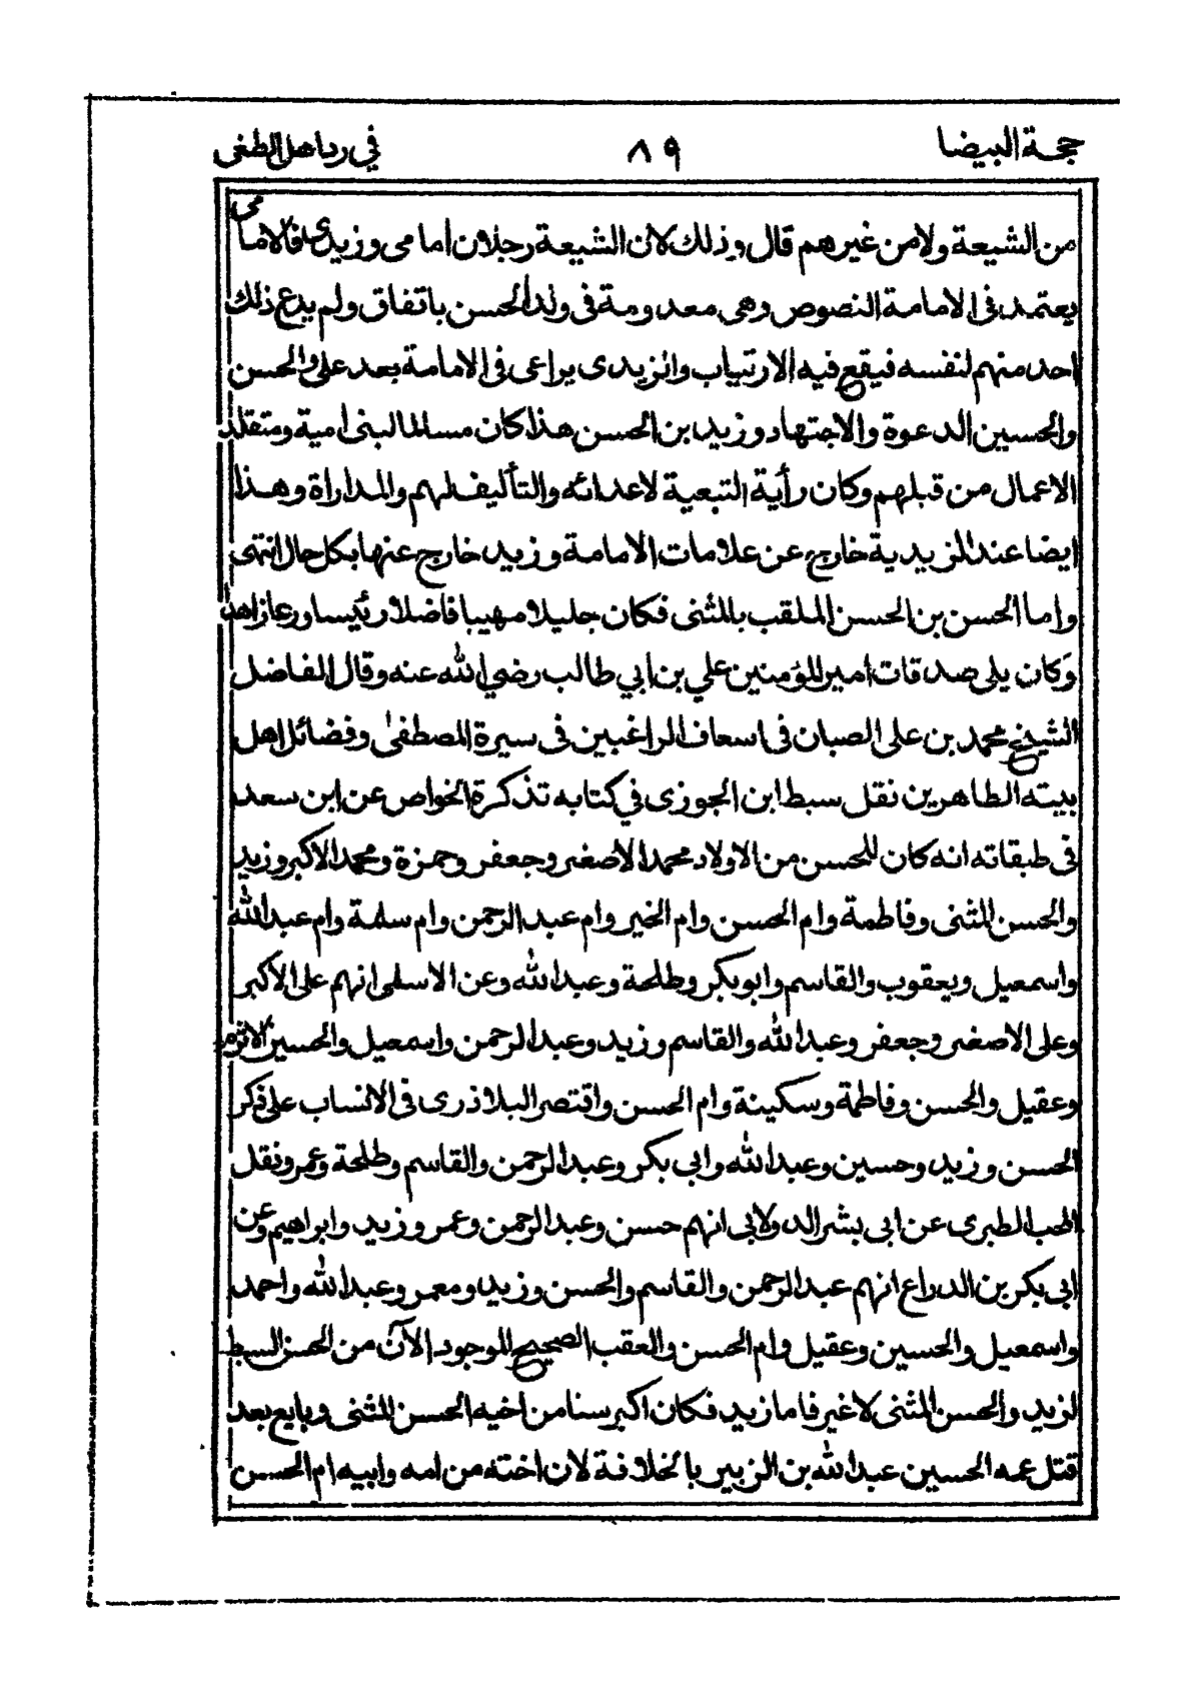 حجة البيضا ٨٩ في رد اهل الطغى
من الشيعة ولا من غيرهم قال وذلك لان الشيعة رجلان امامى وزيدى فالامامى
يعتمد فى الامامة النصوص وهى معدومة فى ولد الحسن باتفاق ولم يدع ذلك
احد منهم لنفسه فيقع فيه الارتياب والزيدى يراعى فى الامامة بعد على والحسن
والحسين الدعوة والاجتهاد وزيد بن الحسن هذا كان مسالما لبنى امية ومتقلد
الاعمال من قبلهم وكان رأية التبعية لاعدائه والتأليف لهم والمداراة وهذا
ايضا عند الزيدية خارج عن علامات الامامة وزيد خارج عنها بكل حال انتهى
واما الحسن بن الحسن الملقب بالمثنى فكان جليلا مهيبا فاضلا رئيسا ورعا زاهدا
وكان يلى صدقات امير المؤمنين علي بن ابي طالب رضي الله عنه وقال الفاضل
الشيخ محمد بن على الصبان فى اسعاف الراغبين فى سيرة المصطفى وفضائل اهل
بيته الطاهرين نقل سبط ابن الجوزى في كتابه تذكرة الخواص عن ابن سعد
فى طبقاته انه كان للحسن من الاولاد محمد الاصغر وجعفر وحمزة ومحمد الاكبر وزيد
والحسن المثنى وفاطمة وام الحسن وام الخير وام عبد الرحمن وام سلمة وام عبد الله
واسمعيل ويعقوب والقاسم وابوبكر وطلحة وعبد الله وعن الاسلمى انهم على الاكبر
وعلى الاصغر وجعفر وعبد الله والقاسم وزيد وعبد الرحمن واسمعيل والحسين الاثرم
وعقيل والحسن وفاطمة وسكينة وام الحسن واقتصر البلاذرى فى الانساب على ذكر
الحسن وزيد وحسين وعبد الله وابى بكر وعبد الرحمن والقاسم وطلحة وعمر ونقل
المحب الطبرى عن ابى بشر الدولابى انهم حسن وعبد الرحمن وعمر وزيد وابراهيم وعن
ابى بكر بن الدراع انهم عبد الرحمن والقاسم والحسن وزيد ومعمر وعبد الله واحمد
واسمعيل والحسين وعقيل وام الحسن والعقب الصحيح الموجود الآن من الحسن السبط
لزيد والحسن المثنى لا غير فاما زيد فكان اكبر سنا من اخيه الحسن المثنى وبايع بعد
قتل عمه الحسين عبد الله بن الزبير بالخلافة لان اخته من امه وابيه ام الحسن